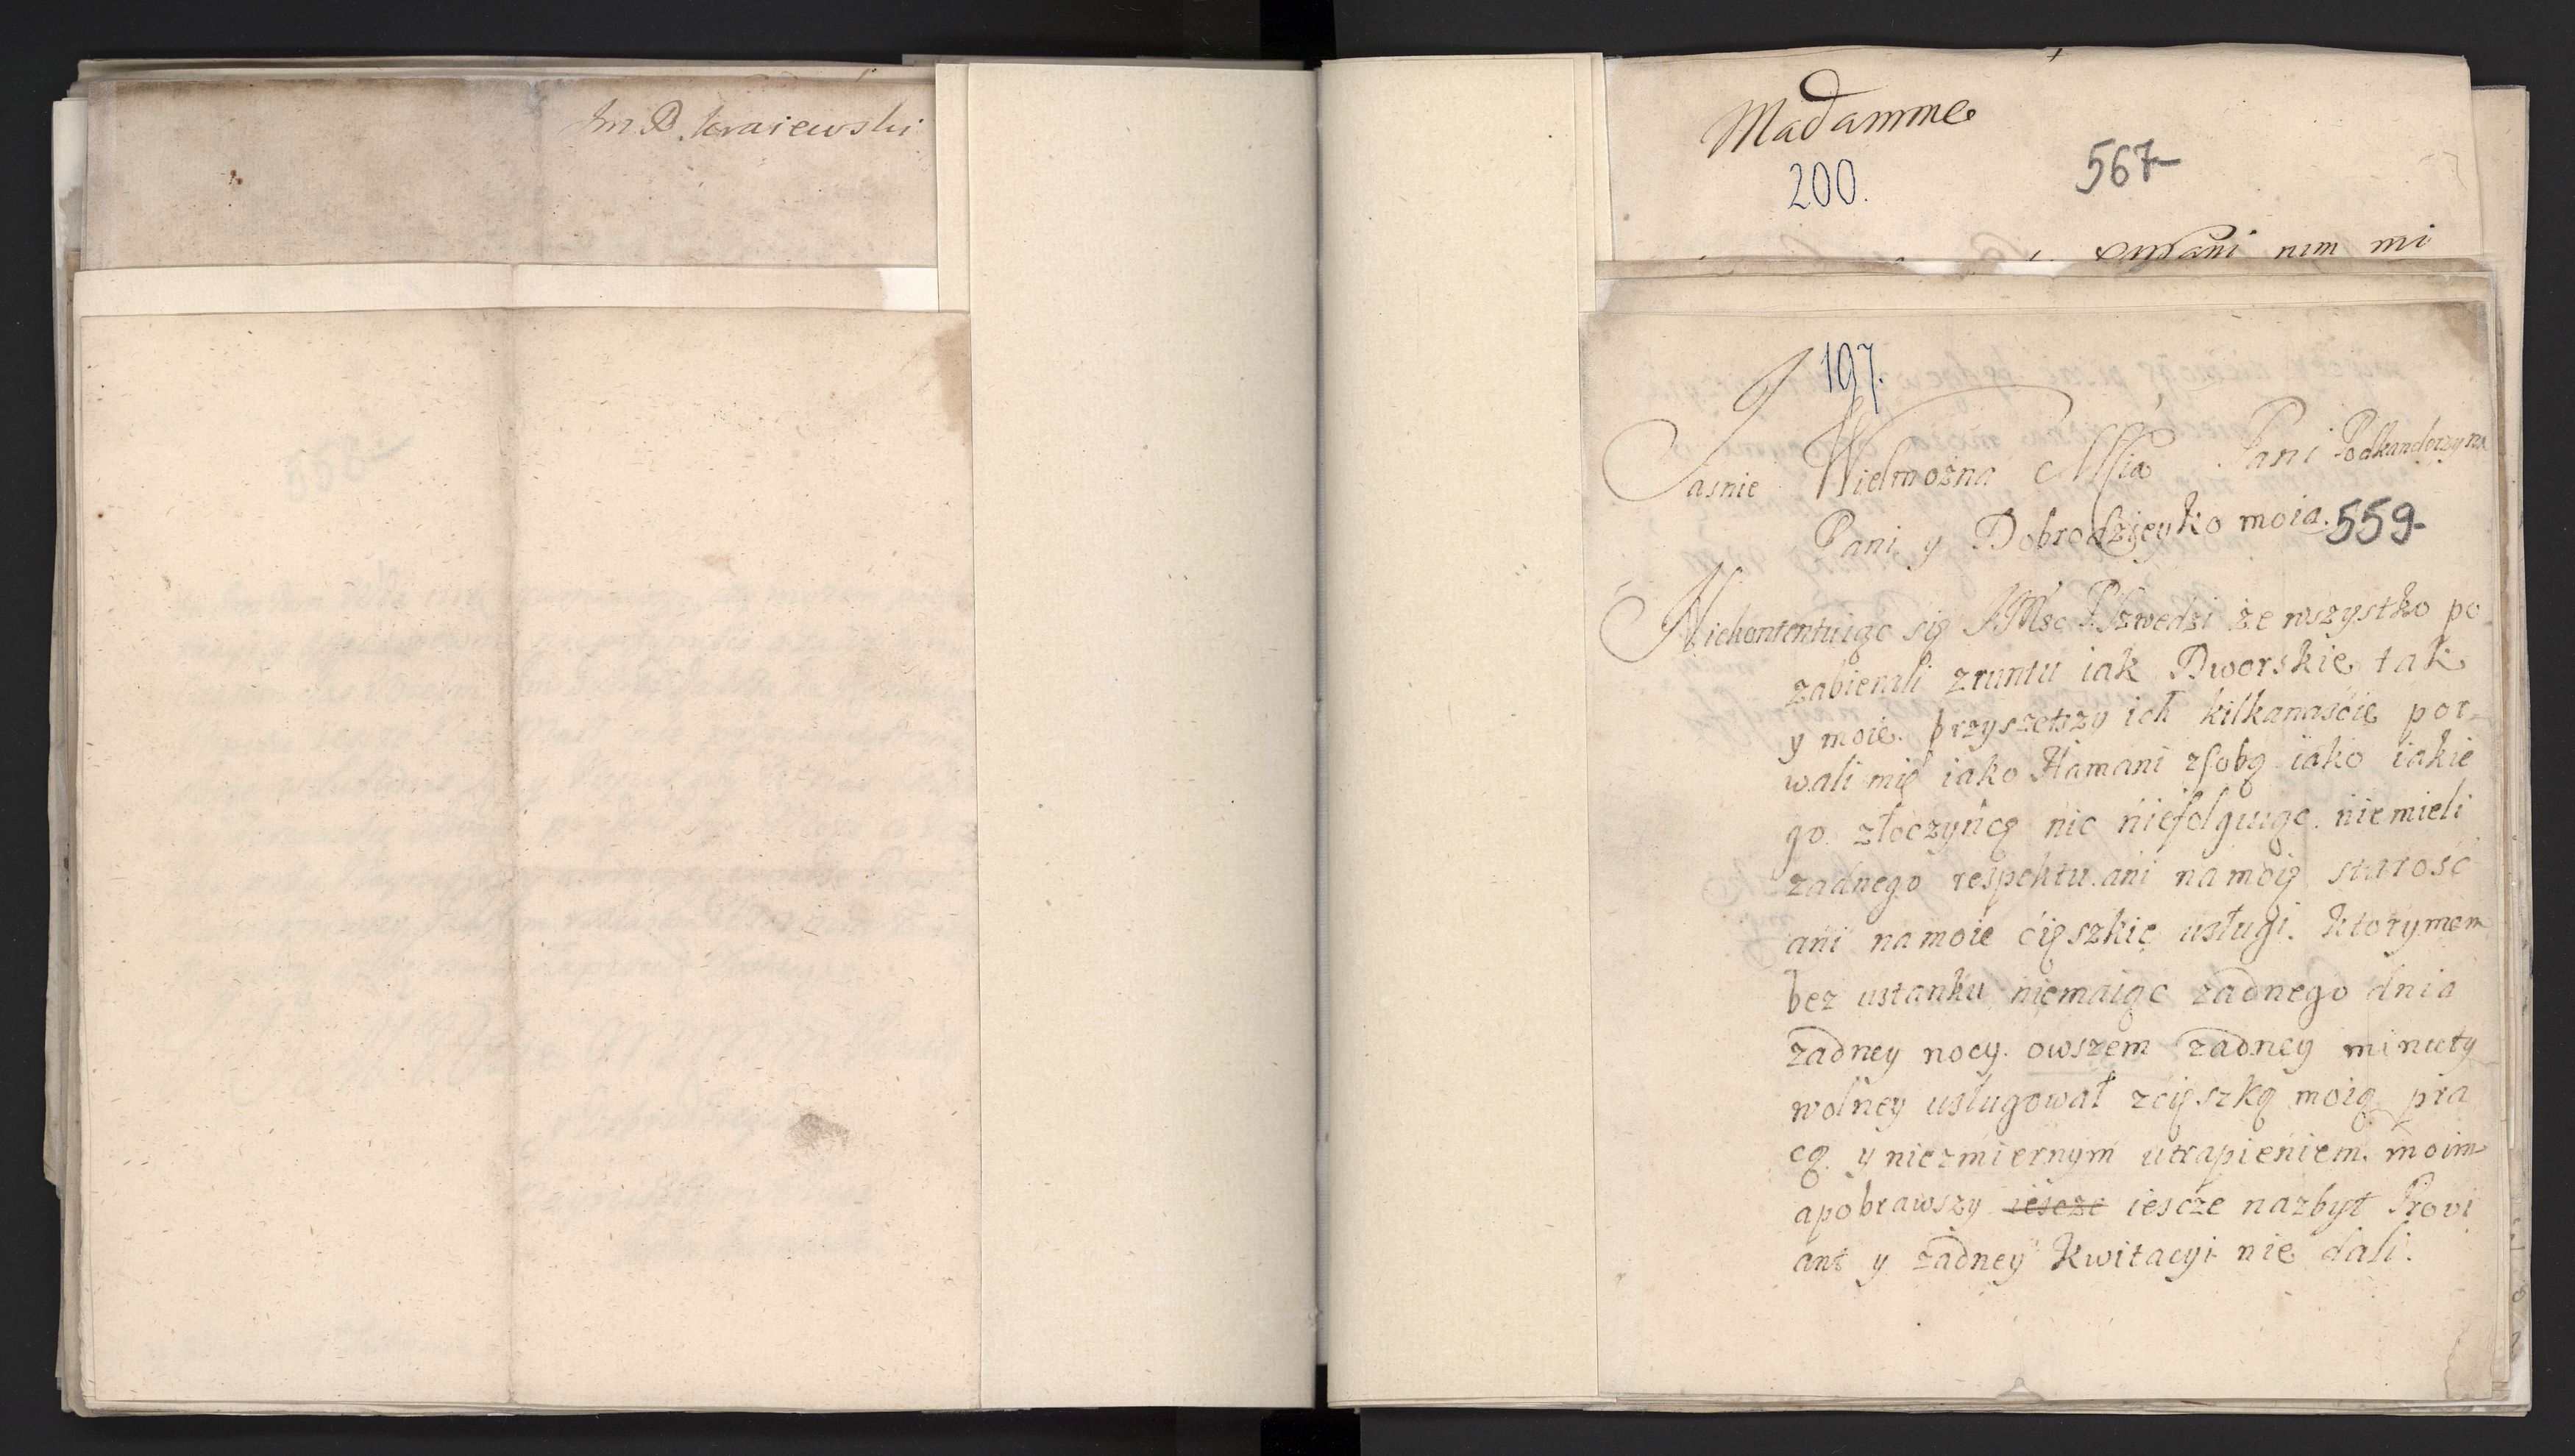 Im P. Kraiewski
Madamme
200.
567
nim mi
197.
Jasnie Wielmożna MŚia Pani Podkanclerzyna
Pani y Dobrodzieyko moia.
559
Niekontentuiąc się IMsc PSzwedzi że wszystko po
zabierali zruntu iak Dworskie tak
y moie. przyszetszy ich kilkanaście por-
wali mię iako Hamani zsobą iako iakie
go złoczyńcę nic niefolguiąc. niemieli
żadnego respektu. ani na moię starość
ani na moie cięszkie usługi. ktorymem
bez ustanku niemaiąc żadnego dnia
żadney nocy. owszem żadney minuty
wolney usługował zcięszką moią pra
cą. y niezmiernym utrapieniem. moim
apobrawszy iescze iescze nazbyt Provi
ant y żadney kwitacyi nie dali.